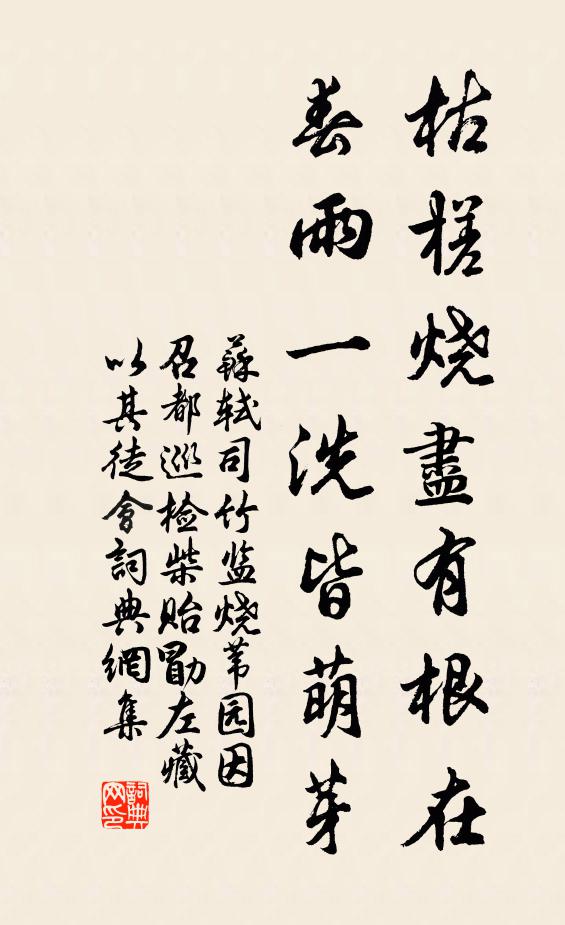 枯槎烧盡有根在
春雨一洗皆萌芽
蘇轼司竹监烧苇园因
召都巡检柴貽勖左藏
以其徒會詞典網集
詞典网印